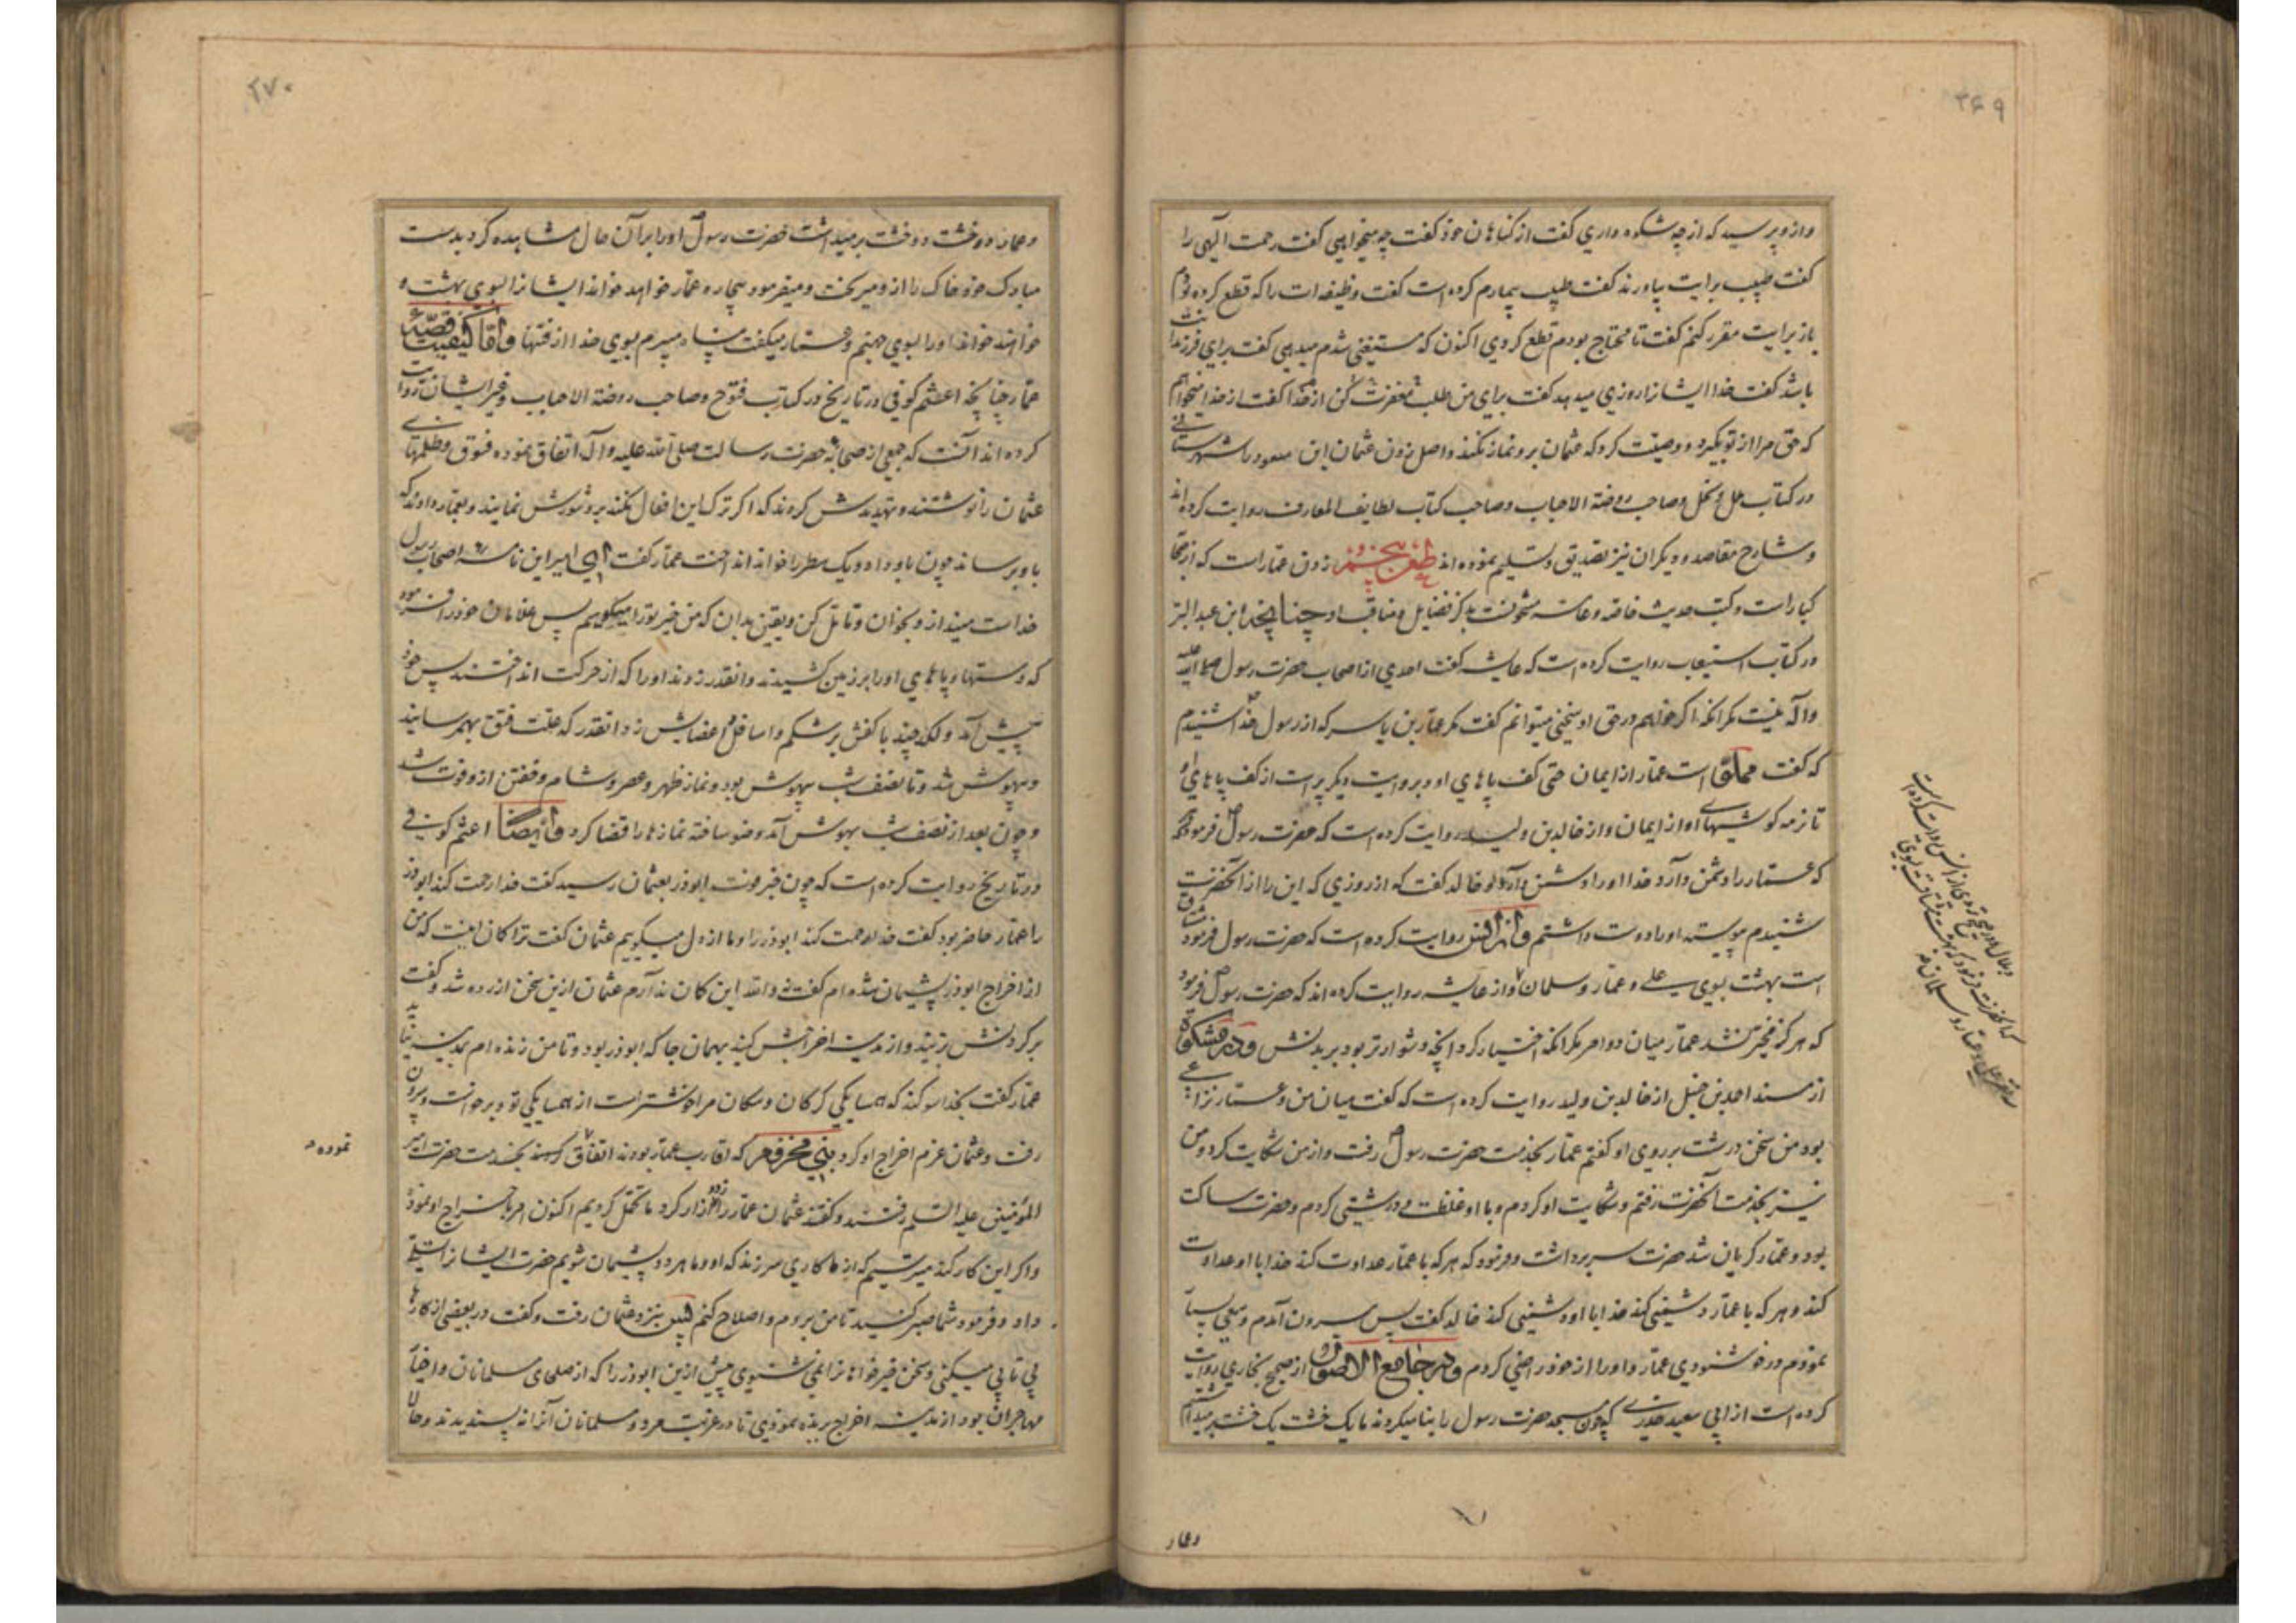 ۳۶۹
وازو پرسید که از چه شکوه داری گفت از کناهان خوذ گفت چه میخواهی گفت رحمت الهی را
گفت طبیب برایت بیاورند گفت طبیب بیمارم کرده است گفت وظیفه‌ات را که قطع کرده بودم
باز برایت مقرر کنم گفت تا محتاج بودم قطع کردی اکنون که مستغنی شدم میدهی گفت برای فرزندانت
باشد گفت خدا ایشانرا روزی میدهد گفت برای من طلب مغفرت کن از خدا گفت از خدا میخواهم
که حق مرا از تو بگیرد و وصیت کرد که عثمان برو نماز نکند و اصل زدن عثمان ابن مسعود را شهرستانی
در کتاب ملل و نحل و صاحب روضة الاحباب و صاحب کتاب لطایف المعارف روایت کرده‌اند
و شارح مقاصد و دیکران نیز تصدیق و تسلیم نموده‌اند طعن پنجم زدن عمار است که از صحابه
کبار است و کتب حدیث خاصه و عامه مشحونست بذکر فضایل و مناقب او چنانچه ابن عبد البر
در کتاب استیعاب روایت کرده است که عایشه گفت احدی از اصحاب حضرت رسول صلی الله علیه
و آله نیست مکر انکه اکر خواهم در حق او سخنی میتوانم گفت مکر عمار بن یاسر که از رسول خدا شنیدم
که گفت مملو است عمار از ایمان حتی کف پاهای او و بروایت دیکر پر است از کف پاهای او
تا نرمه کوشهای او از ایمان و از خالد بن ولید روایت کرده است که حضرت رسول فرمود هرکه
که عمار را دشمن دارد خدا او را دشمن دارد و خالد گفت که از روزی که این را از آنحضرت
شنیدم پیوسته او را دوست داشتم و از انس روایت کرده است که حضرت رسول فرمود مشتاق
است بهشت بسوی علی و عمار و سلمان و از عایشه روایت کرده‌اند که حضرت رسول فرمود
که هرکز مخیر نشد عمار میان دو امر مکر انکه اختیار کرد انچه دشوارتر بود بر بدنش و در مشکوة
از مسند احمد بن حنبل از خالد بن ولید روایت کرده است که گفت میان من و عمار نزاعی
بود من سخن درشت بر روی او گفتم عمار بخدمت حضرت رسول رفت و از من شکایت کرد و من
نیز بخدمت آنحضرت رفتم و شکایت او کردم و با او غلظت و درشتی کردم و حضرت ساکت
بود و عمار کریان شد حضرت سر برداشت و فرمود که هر که با عمار عداوت کند خدا با او عداوت
کند و هر که با عمار دشمنی کند خدا با او دشمنی کند خالد گفت پس بیرون آمدم و سعی بسیار
نموذم در خوشنودی عمار و او را از خود راضی کردم و در جامع الاصول از صحیح بخاری روایت
کرده است از ابی سعید خدری که چون مسجد حضرت رسول را بنا میکردند ما یک خشت یک خشت برمیداشتیم
وعمار
۲۷۰
وعمار دو خشت دو خشت برمیداشت حضرت رسول او را بر آن حال مشاهده کرد بدست
مبارک خوذ خاک را از و میریخت و میفرمود بیچاره عمار خواهد خواند ایشانرا بسوی بهشت و
خواهند خواند او را بسوی جهنم و عمار میگفت پناه میبرم بسوی خدا از فتنها واما کیفیت قصه
عمار چنانچه اعثم کوفی در تاریخ در کتاب فتوح و صاحب روضة الاحباب و غیر ایشان روایت
کرده‌اند آنست که جمعی از صحابه حضرت رسالت صلی الله علیه و آله اتفاق نموده فسوق و ظلمهای
عثمان را نوشتند و تهدیدش کردند که اکر ترک این افعال نکند برو شورش نمایند و بعمار دادند که
باو برساند چون باو داد و یک سطر را خواند انداخت عمار گفت ای امیر این نامه اصحاب رسول
خداست مینداز و بخوان و تامل کن و یقین بدان که من خیر تو را میکویم پس غلامان خوذ را فرمود
که دستها و پاهای او را بر زمین کشیدند و انقدر زدند او را که از حرکت انداختند پس خوذ
پیش آمد و لکد چند با کفش بر شکم و اسافل اعضایش زد انقدر که علت فتق بهمرسانید
و بیهوش شد و تا نصف شب بیهوش بود و نماز ظهر و عصر و شام و خفتن از و فوت شد
و چون بعد از نصف شب بهوش آمد وضو ساخته نمازها را قضا کرد و ایضا اعثم کوفی
در تاریخ روایت کرده است که چون خبر موت ابوذر بعثمان رسید گفت خدا رحمت کند ابوذر
را عمار حاضر بود گفت خدا رحمت کند ابوذر را و ما از دل میکوییم عثمان گفت ترا کان اینست که من
از اخراج ابوذر پشیمان شده‌ام گفت نه والله این کان ندارم عثمان ازین سخن ازرده شد و گفت
بر کردنش بزنید و از مدینه اخراجش کنید بهمان جا که ابوذر بود و تا من زنده‌ام بمدینه نیاید
عمار گفت بخدا سوکند که همسایکی کرکان و سکان مرا خوشتر است از همسایکی تو و برخواست و بیرون
رفت و عثمان عزم اخراج او کرد بنی مخزوم که اقارب عمار بودند اتفاق بخدمت حضرت امیر
المؤمنین علیه السلم رفتند و گفتند عثمان عمار را زد و ازار کرد ما تحمل کردیم اکنون امر باخراج او نموذ
و اکر این کار کند میترسیم که از ما کاری سر زند که او و ما هر دو پشیمان شویم حضرت ایشانرا تسلی
داد و فرمود شما صبر کنید تا من بروم و اصلاح کنم پس نیز نزد عثمان رفت و گفت در بعضی از کارها
بی تابی میکنی و سخن خیرخواهانرا نمی شنوی پیش ازین ابوذر را که از صلحای مسلمانان و اخیار
مهاجران بود از مدینه اخراج بربذه نموذی تا در غربت مرد و مسلمانان آنرا نه پسندیدند و حالا
نموده